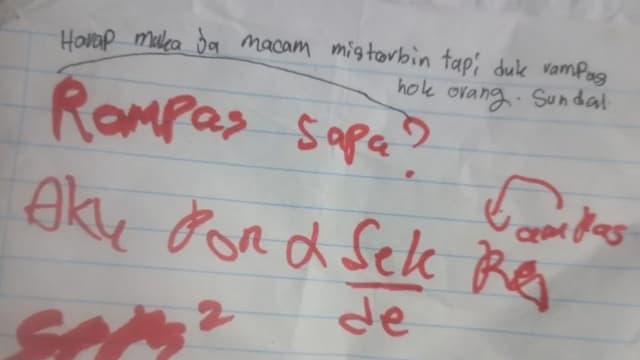 Harap muka ja macam mistarbin tapi duk rampas
hok orang. Sundal
Rampas sapa?
Aku pon d Sek Re
de
ampas